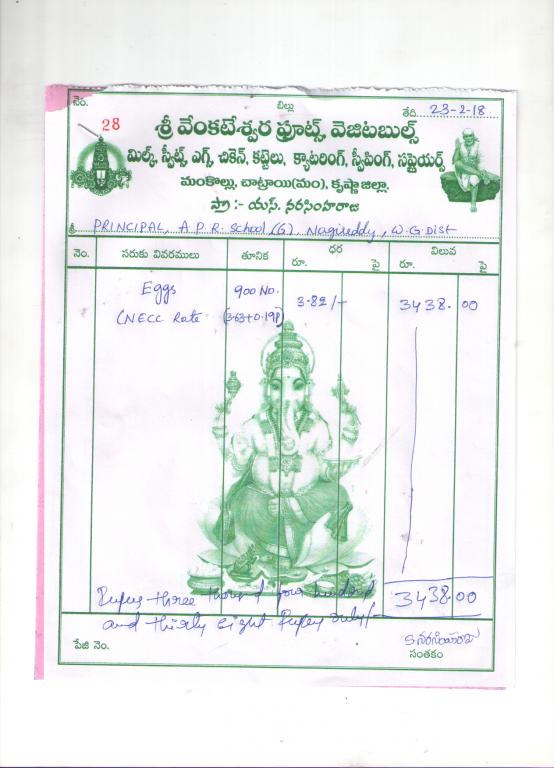 నెం. బిల్లు తేది. 23-2-18
28
శ్రీ వేంకటేశ్వర ఫ్రూట్స్, వెజిటబుల్స్
మిల్క్, స్వీట్స్, ఎగ్స్, చికెన్, కట్టెలు, క్యాటరింగ్, స్వీపింగ్, సప్లైయర్స్
మంకొల్లు, చాట్రాయి(మం), కృష్ణాజిల్లా.
ప్రొ :- యస్. నరసింహరాజు
శ్రీ PRINCIPAL, A.P.R. School (G), Nagireddy, W.G. Dist
నెం. సరుకు వివరములు తూనిక ధర విలువ
రూ. పై రూ. పై
Eggs 900 No. 3.82/- 3438.00
(NECC Rate (3.63+0.19P)
Rupees three thousand four hundred 3438.00
and thirty eight Rupees only/-
పేజి నెం. S నరసింహరాజు
సంతకం